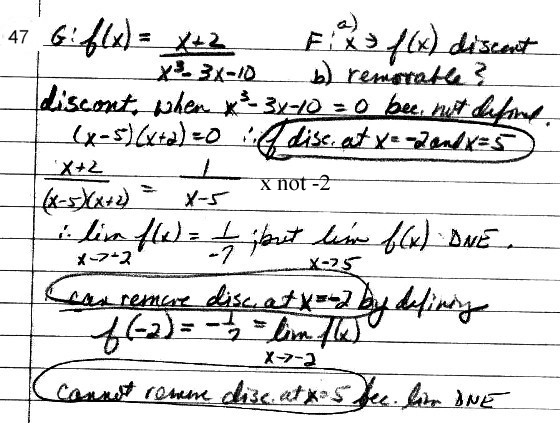 47 G: f(x) = x+2 / x³-3x-10 F: a) x ∋ f(x) discont
b) removable?
discont. when x³-3x-10 = 0 bec. not defined.
(x-5)(x+2)=0 ∴ f disc. at x=-2 and x=5
x+2 / (x-5)(x+2) = 1 / x-5 x not -2
∴ lim x→-2 f(x) = 1/-7 ; but lim x→5 f(x) DNE.
can remove disc. at x=-2 by defining
f(-2) = -1/7 = lim x→-2 f(x)
cannot remove disc. at x=5 bec. lim DNE